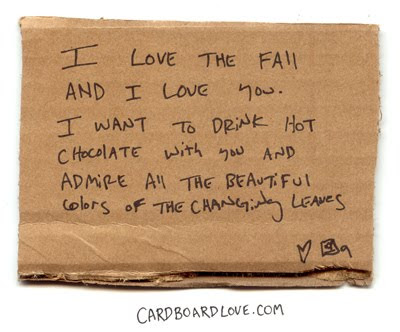 I LOVE THE FAll
AND I LOVE you.
I WANT TO DRINK HOT
CHOCOLATE with you AND
ADMIRE All THE BEAUTiFUl
Colors OF THE CHANGiNg LEAVES
CARDBOARDLOVE.COM